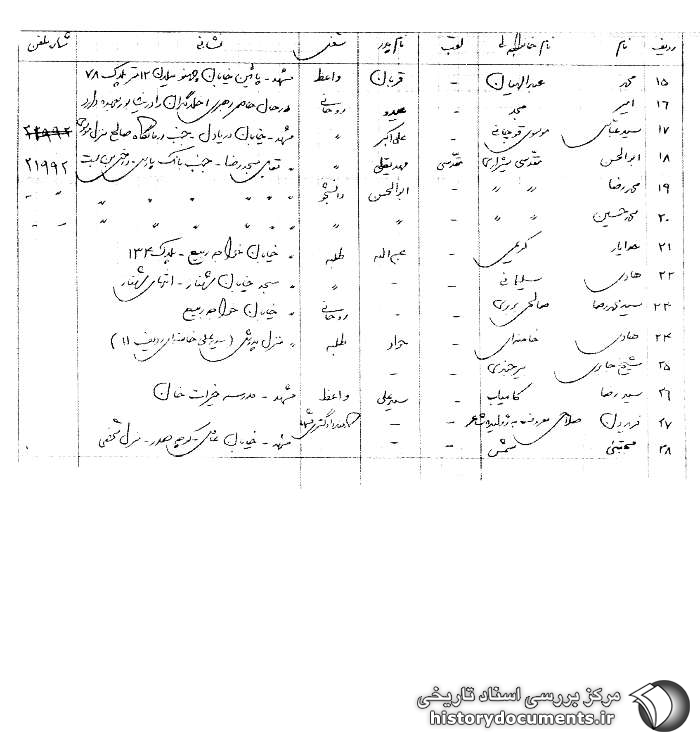 ردیف نام نام خانوادگی لقب نام پدر شغل نشانی شماره تلفن
۱۵ محمد عبدالهیان - قربان واعظ مشهد - پائین خیابان ۷۸
۱۶ امیر مجد - عبدو روحانی در حال حاضر رهبری اخلالگران را در نیشابور بعهده دارد
۱۷ سید عباس موسوی قوچانی - علی اکبر " مشهد - خیابان دریادل - جنب درمانگاه صالح منزل
۱۸ ابوالحسن مقدسی شیرازی مقدسی مهدیقلی " " مقابل مسجد رضا - جنب بانک ۲۱۹۹۲
۱۹ محمدرضا " " - ابوالحسن دانشجو " " " " "
۲۰ محمدحسین " " - " " " " " " "
۲۱ خدایار کریمی - عبدالله طلبه " خیابان خواجه ربیع - پلاک ۱۳۴
۲۲ هادی سلیمانی - - " " مسجد خیابان شهناز - انتهای شهناز
۲۳ سید محمدرضا صالحی - - روحانی " خیابان خواجه ربیع
۲۴ هادی خامنه‌ای - جواد طلبه " منزل پدرش (سید علی خامنه‌ای ردیف ۱۱)
۲۵ شیخ هادی بیرجندی - -
۲۶ سید رضا کامیاب - سید علی واعظ مشهد - مدرسه خیرات خان
۲۷ فریدون صلاحی معروف به ژولیده شاعر - -
۲۸ مجتبی شمس - - مشهد - خیابان - منزل شخصی
مرکز بررسی اسناد تاریخی
historydocuments.ir